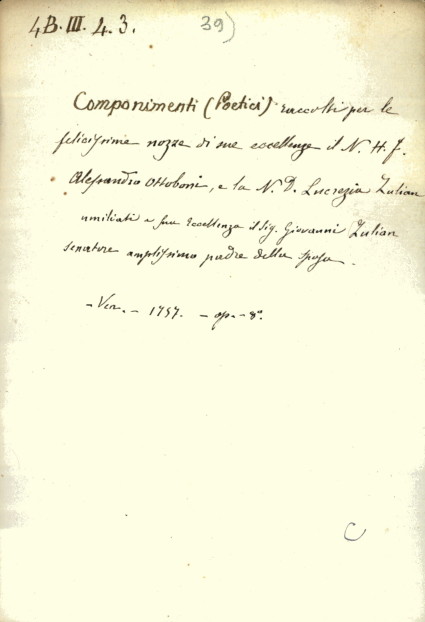 4B. III. 4. 3. 39)
Componimenti (Poetici) raccolti per le
felicissime nozze di sue eccellenze il N. H. f.
Alessandro Ottoboni, e la N. D. Lucrezia Zulian
umiliati a sua Eccellenza il Sig. Giovanni Zulian
senatore amplissimo padre della sposa.
- Ven. - 1757. - op. - 8°.
C